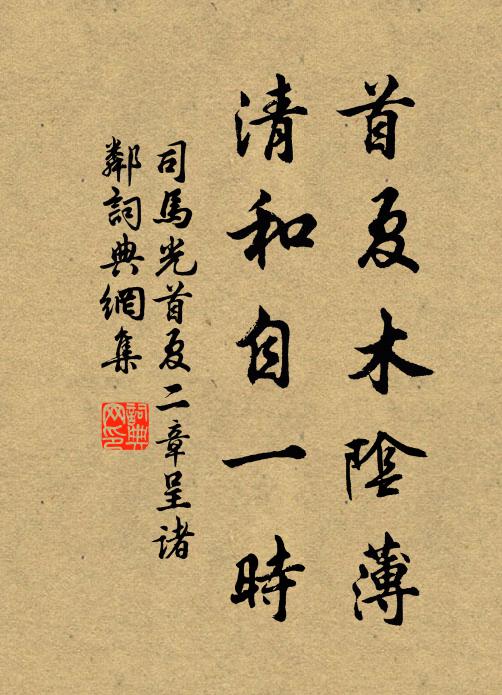 首夏木陰薄
清和自一時
司馬光首夏二章呈諸
鄰詞典網集
詞典
网印